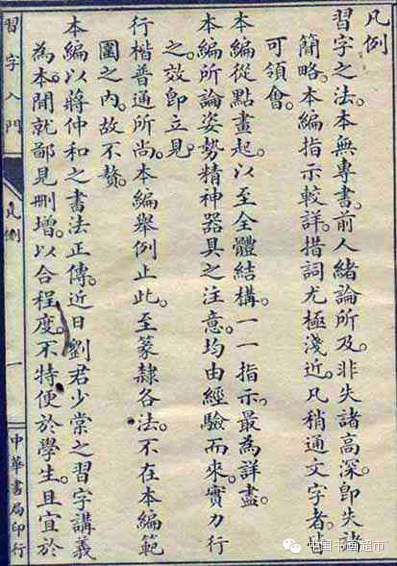 凡例
習字之法。本無專書。前人緒論所及。非失諸高深。卽失諸
簡略。本編指示較詳。措詞尤極淺近。凡稍通文字者。皆
可領會。
本編從點畫起。以至全體結構。一一指示。最爲詳盡。
本編所論姿勢精神器具之注意。均由經驗而來。實力行
之。效卽立見。
行楷普通所尚。本編舉例止此。至篆隸各法。不在本編範
圍之內。故不贅。
本編以蔣仲和之書法正傳。近日劉君少棠之習字講義
爲本。間就鄙見刪增。以合程度。不特便於學生。且宜於
習字入門
凡例
一
中華書局印行
中国书画超市